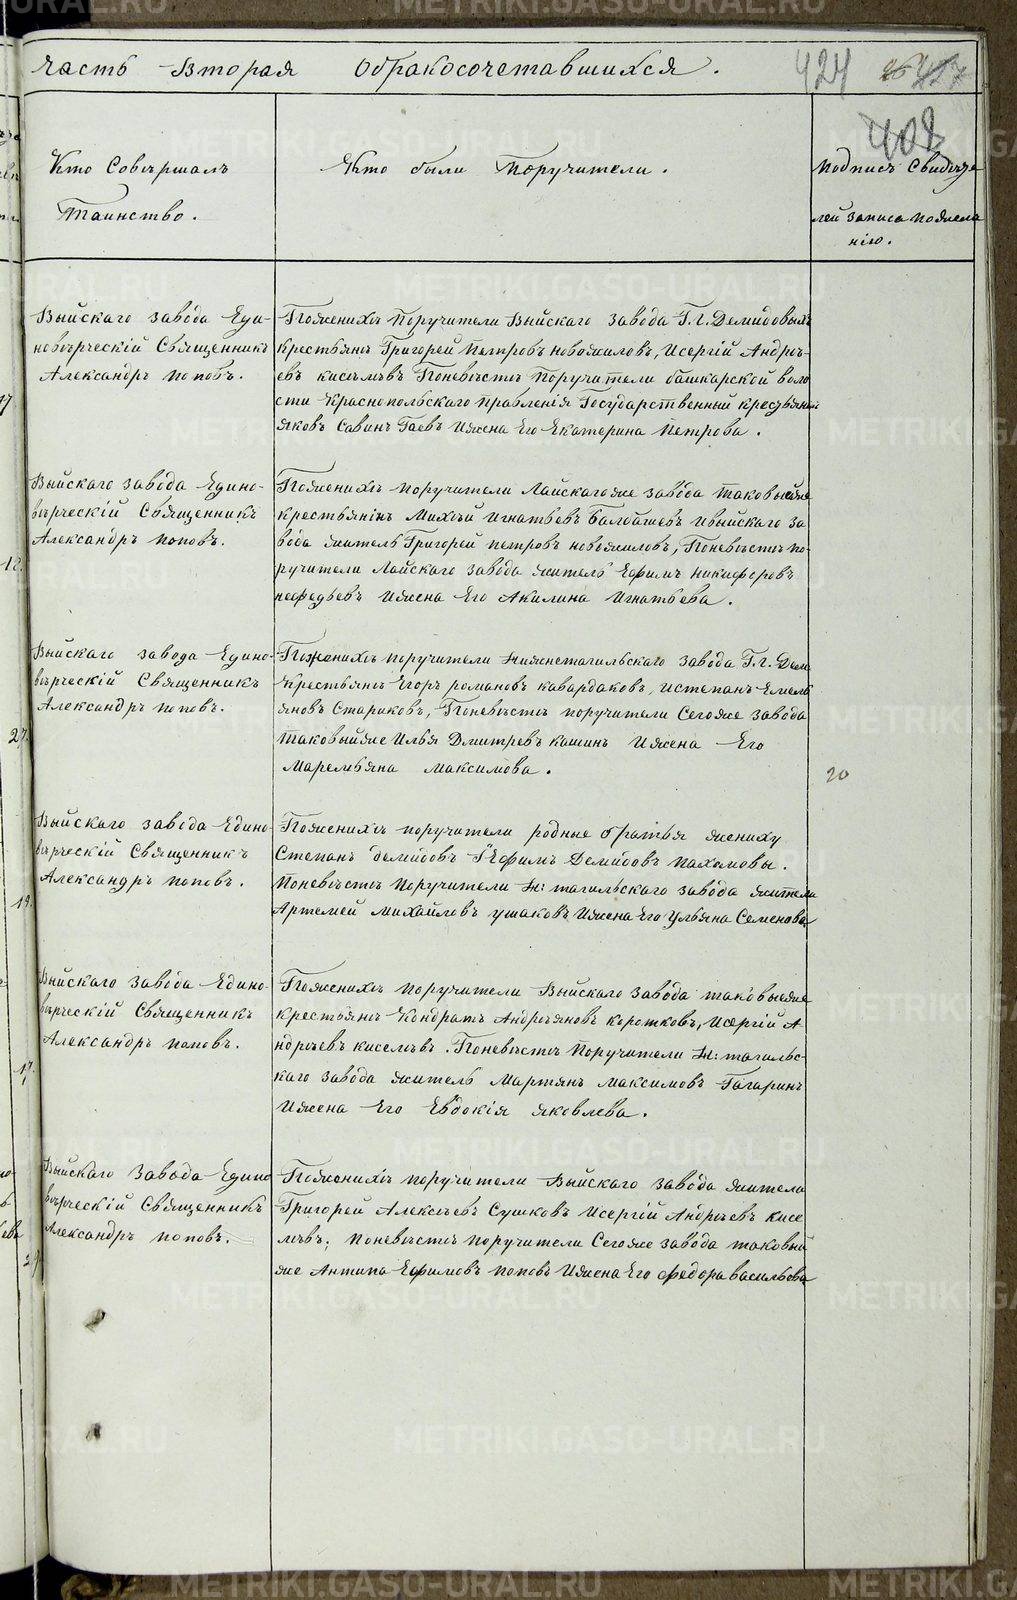 часть Вторая Обракосочетавшихся.
424
408
Кто Совершалъ
Таинство.
Кто были Поручители.
Подпись Свидѣте
лей записа пожела
нію.
Выйскаго завода Еди-
новѣрческій Священникъ
Александръ поповъ.
Поженихѣ Поручители Выйскаго завода Г.г. Демидовыхъ
Крестьяне Григорей Петровъ новожиловъ, Исергій Андрѣ-
евъ киселѣвъ Поневѣстѣ Поручители башкарской воло
сти Краснопольскаго правленія Государственный крестьянинъ
яковъ Савинъ Гаевъ Ижена Его Екатерина Петрова.
Выйскаго завода Едино-
вѣрческій Священникъ
Александръ поповъ.
Поженихѣ поручители Лайскагоже завода таковыйже
крестьянинъ Михѣй Игнатьевъ Балдашевъ Ивыйскаго за
вода житель Григорей петровъ новожиловъ, Поневѣстѣ по-
ручители Лайскаго завода житель Ефимъ никифоровъ
нефедьевъ Ижена Его Акилина Игнатьева.
Выйскаго завода Едино-
вѣрческій Священникъ
Александръ поповъ.
Поженихѣ поручители Нижнетагильскаго завода Г.г. Дем
Крестьяне Егоръ романовъ кавардаковъ, истепанъ Емель
яновъ Стариковъ, Поневѣстѣ поручители Сегоже завода
таковыйже Илья Дмитревъ кашинъ Ижена Его
Маремьяна максимова.
20
Выйскаго завода Едино-
вѣрческій Священникъ
Александръ поповъ.
Поженихѣ поручители родные братья жениху
Степанъ демидовъ Ефимъ Демидовъ пахомовы.
Поневѣстѣ Поручители Н: тагильскаго завода жители
Артемей михайловъ ушаковъ Ижена Его Ульяна Семенова
Выйскаго завода Едино-
вѣрческій Священникъ
Александръ поповъ.
Поженихѣ поручители Выйскаго завода таковыеже
крестьяне Кондратъ Андрѣяновъ коротковъ, Исергій А-
ндрѣевъ киселѣвъ. Поневѣстѣ Поручители Н: тагильс-
каго завода житель Мартянъ максимовъ Гагаринъ
Ижена Его Евдокія яковлева.
Выйскаго завода Едино
вѣрческій Священникъ
Александръ поповъ.
Поженихѣ поручители Выйскаго завода жители
Григорей Алексѣевъ Сушковъ Исергій Андрѣевъ Кисе
лѣвъ; поневѣстѣ поручители Сегоже завода таковый
же Антипа Ефимовъ поповъ Ижена Его федора васильева